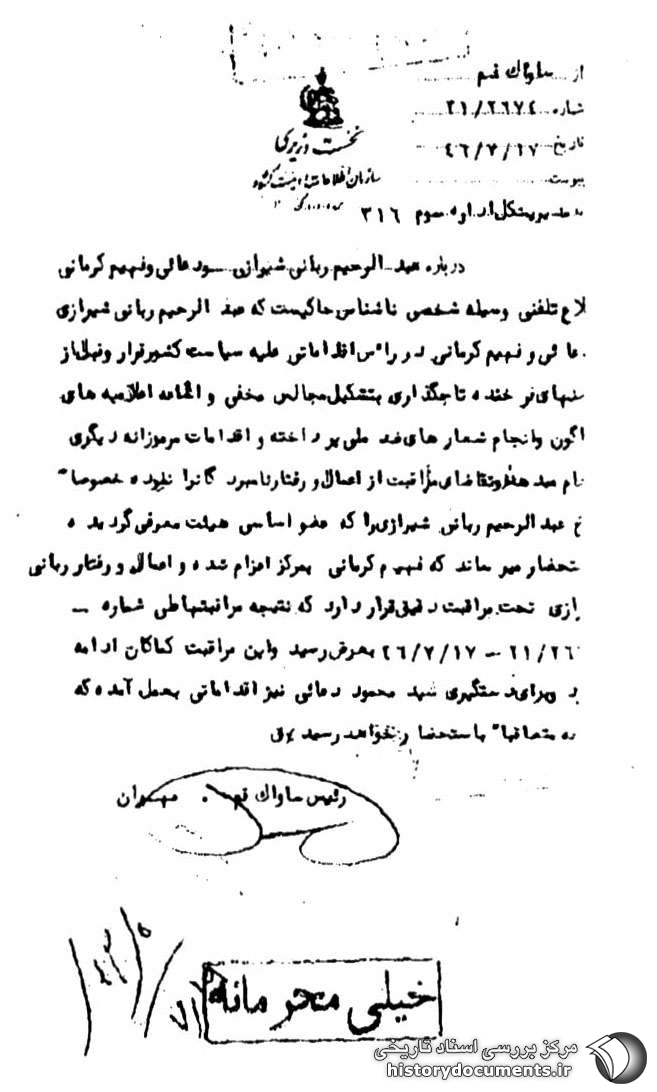 از ساواك قم
شماره ۲۱/۲۶۷۴
تاریخ ۴۶/۷/۱۷
پیوست
نخست وزیری
سازمان اطلاعات و امنیت کشور
مدیریتکل اداره سوم ۳۱۶
درباره عبدالرحیم ربانی شیرازی دعائی وفهیم کرمانی
لاع تلفنی وسیله شخصی ناشناس حاکیست که عبد الرحیم ربانی شیرازی
عائی و فهیم کرمانی در راس اقداماتی علیه سیاست کشور قرار وقبل از
نهای فرخنده تاجگذاری بتشکیل مجالس مخفی و اعلامیه های
اگون وانجام شعار های ضد ملی پرداخته و اقدامات مرموزانه دیگری
نام میدهند وتقاضای مراقبت از اعمال و رفتار نامبردگانرا نموده خصوصا"
خ عبد الرحیم ربانی شیرازی را که عضو اساسی هیئت معرفی گردیده
تحضار میرساند که فهیم کرمانی بمرکز اعزام شده و اعمال و رفتار ربانی
ازی تحت مراقبت دقیق قرار دارد که نتیجه مراقبتها طی شماره –
۲۱/۲۶ – ۴۶/۷/۱۷ بعرض رسید واین مراقبت کماکان ادامه
وبرای دستگیری سید محمود دعائی نیز اقداماتی بعمل آمده که
متعاقبا" باستحضار خواهد رسید
رئیس ساواك قم . مهران
خیلی محرمانه
مرکز بررسی اسناد تاریخی
historydocuments.ir